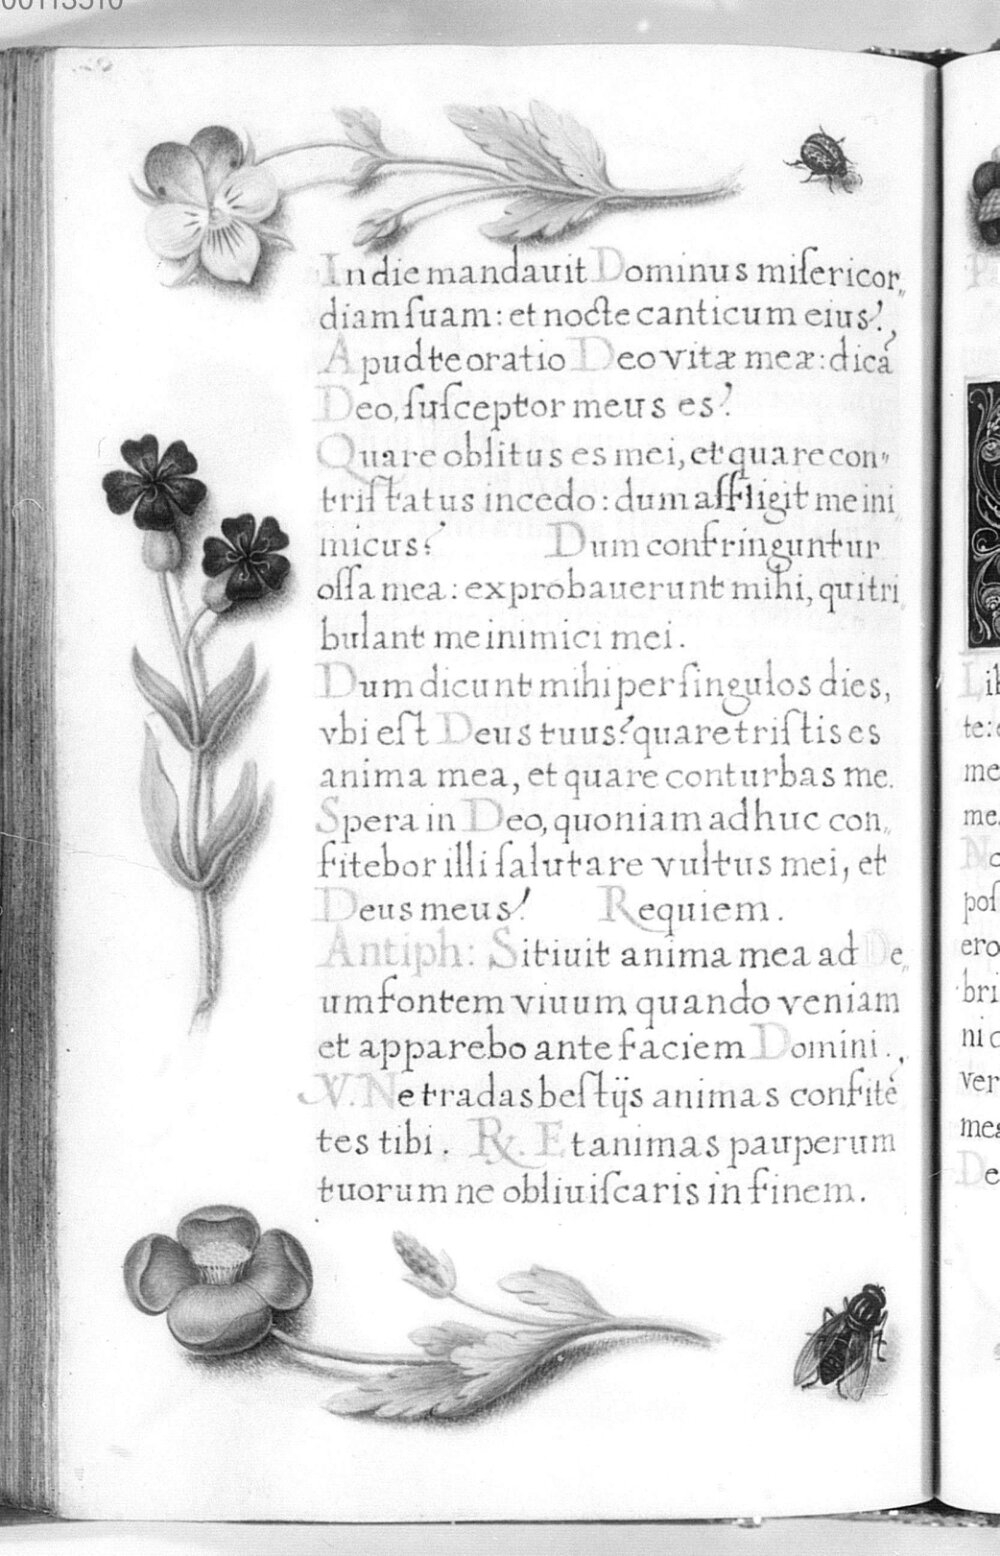 In die mandauit Dominus miſericor„
diam ſuam: et nocte canticum eius?,
Apud te oratio Deo vitæ meæ: dicā
Deo, ſuſceptor meus es?
Quare oblitus es mei, et quare con„
triſtatus incedo: dum affligit me ini
micus? Dum confringuntur
oſſa mea: exprobauerunt mihi, qui tri
bulant me inimici mei.
Dum dicunt mihi per ſingulos dies,
vbi eſt Deus tuus? quare triſtis es
anima mea, et quare conturbas me.
Spera in Deo, quoniam adhuc con„
fitebor illi ſalutare vultus mei, et
Deus meus! Requiem.
Antiph: Sitiuit anima mea ad De„
um fontem viuum quando veniam
et apparebo ante faciem Domini.,
V. Ne tradas beſtijs animas confitē
tes tibi. ℞. Et animas pauperum
tuorum ne obliuiſcaris in finem.
te:
me
me
poſ
ero
bri
ni
ver
mea
De